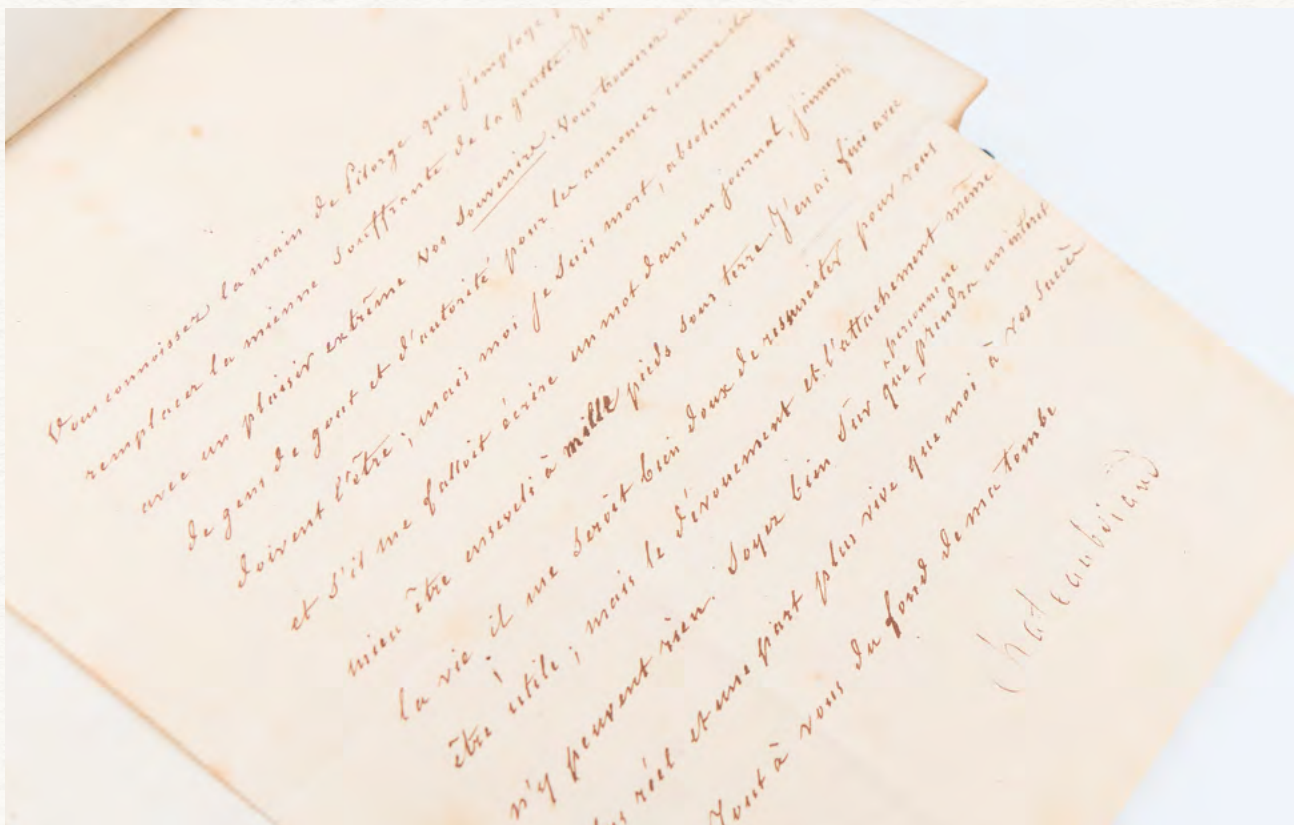 Vous connoissez la main de Pilorge que j'employe
remplacer la mienne souffrante de la goutte. Je
avec un plaisir extrême vos souvenirs. Vous trouverez
de gens de gout et d'autorité pour les annoncer comme ils
doivent l'être ; mais moi je suis mort, absolument mort
et s'il me falloit écrire un mot dans un journal, j'aimerois
mieu être enseveli à mille pieds sous terre. J'en ai fini avec
la vie ; il me seroit bien doux de ressusciter pour vous
être utile ; mais le dévouement et l'attachement même
n'y peuvent rien. Soyez bien sûr que personne ne prendra un intéret
plus réel et une part plus vive que moi à vos succès
Tout à vous du fond de ma tombe
Chateaubriand